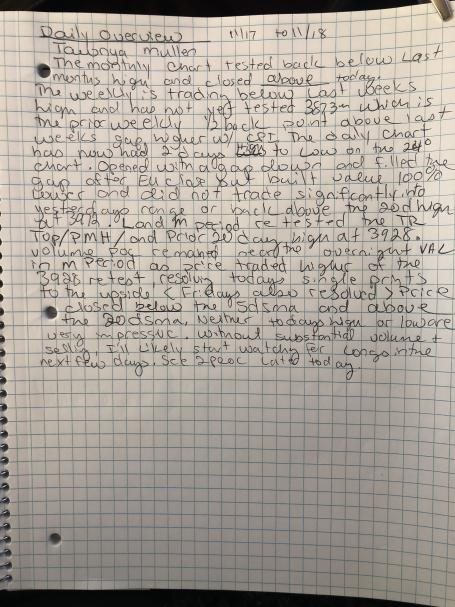 Daily Overview 11/17 to 11/18
Taibnya Mullen
The monthly chart tested back below Last
months high and closed above today.
The weekly is trading below Last weeks
high and has not yet tested 3873 which is
the prior weekly 1/2 back point above last
weeks gap higher w/ CPI. The daily chart
has now had 2 days to Low on the 240
chart. Opened with a gap down and filled the
gap after EU close but built value 100%
Lower and did not trade significantly into
yesterdays range or back above the 20d high
at 3972. L and M period re tested the TR
TOP/PMH/and Prior 20 day high at 3928.
Volume POC remained near the overnight VAL
in M Period as price traded higher of the
3928 retest resolving todays single prints
to the upside (Fridays also resolved) Price
closed below the 5dsma and above
the 20dsma. Neither todays high or low are
very impressive. Without substantial volume +
selling I'll Likely start watching for Longs in the
next few days. See 2peoc Later today.